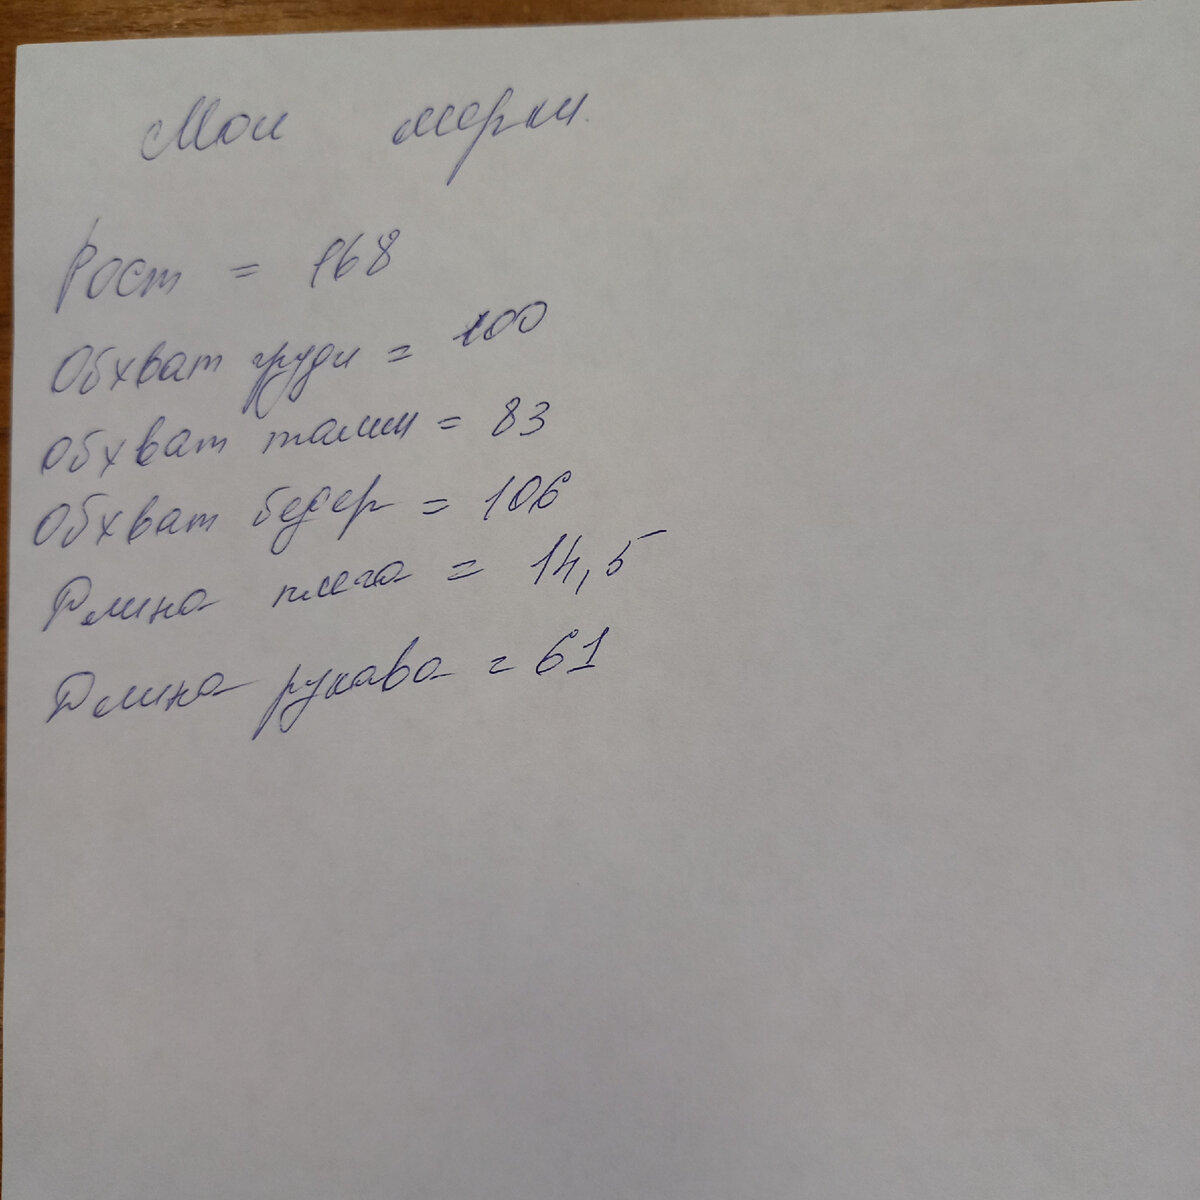 Мои мерки.
Рост = 168
Обхват груди = 100
Обхват талии = 83
Обхват бедер = 106
Длина плеча = 14,5
Длина рукава = 61